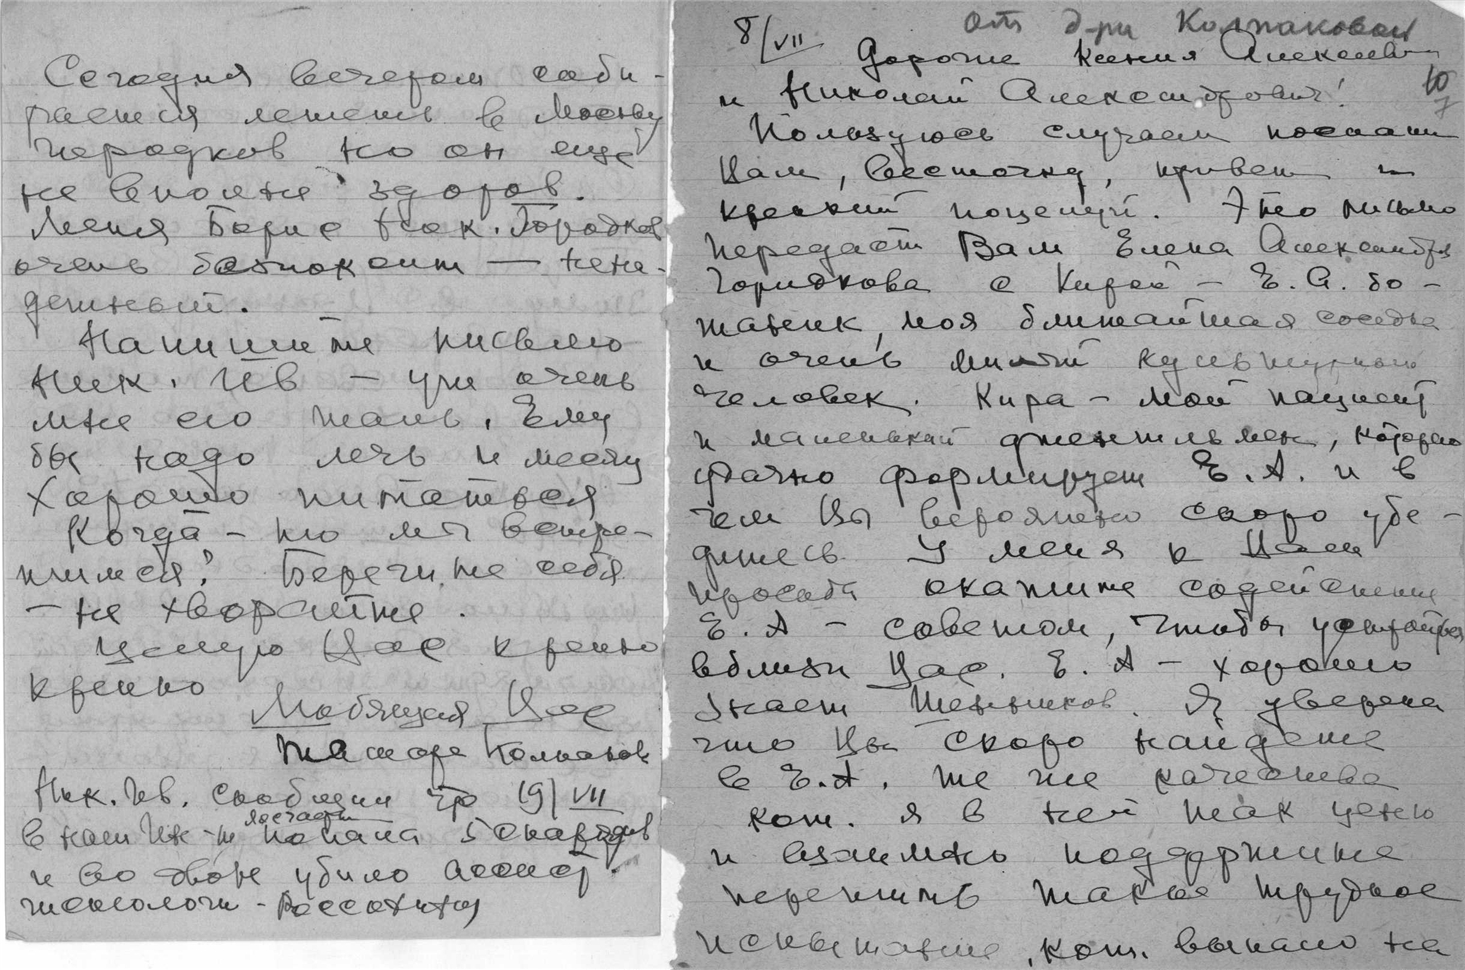 8/VII
от д-ра Колпаковой
Дорогие Ксения Алексеевна
10
7
и Николай Александрович!
Пользуюсь случаем послать
Вам, весточку, привет и
крепкий поцелуй. Это письмо
передаст Вам Елена Александр.
Городкова с Кирой – Е.А. бо-
таник, моя ближайшая соседка
и очень милый культурный
человек. Кира – мой пациент
и маленький джентльмен, которого
удачно формирует Е.А. и в
чем Вы вероятно скоро убе-
дитесь. У меня к Вам
просьба окажите содействие
Е.А – советом, чтобы устроиться
вблизи Вас. Е.А – хорошо
знает Шенников. Я уверена
что Вы скоро найдете
в Е.А. те же качества
кот. я в ней так ценю
и взаимно поддержите
пережить такое трудное
испытание, кот. выпало на
Сегодня вечером соби-
рается лететь в Москву
Городков но он еще
не вполне здоров.
Меня Борис Ник. Городков
очень беспокоит — нена-
дежный.
Напишите письмо
Ник. Ив – уж очень
мне его жаль. Ему
бы надо лечь и месяц
хорошо питаться
Когда-то мы встре-
тимся? Берегите себя
– не хворайте.
Целую Вас крепко
крепко
Любящая Вас
Тамара Колпакова
Ник. Ив. сообщил что 19/VII
в наш Ин-т попала 5 снарядов
и во дворе убило